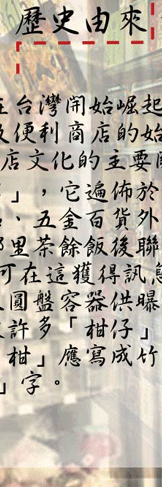 歷史由來
在台灣開始崛起
及便利商店的始
店文化的主要
」，它遍佈於
、五金百貨外
鄰里茶餘飯後聯
可在這獲得訊息
圓盤容器供曝
許多「柑仔」
柑」應寫成竹
」字。